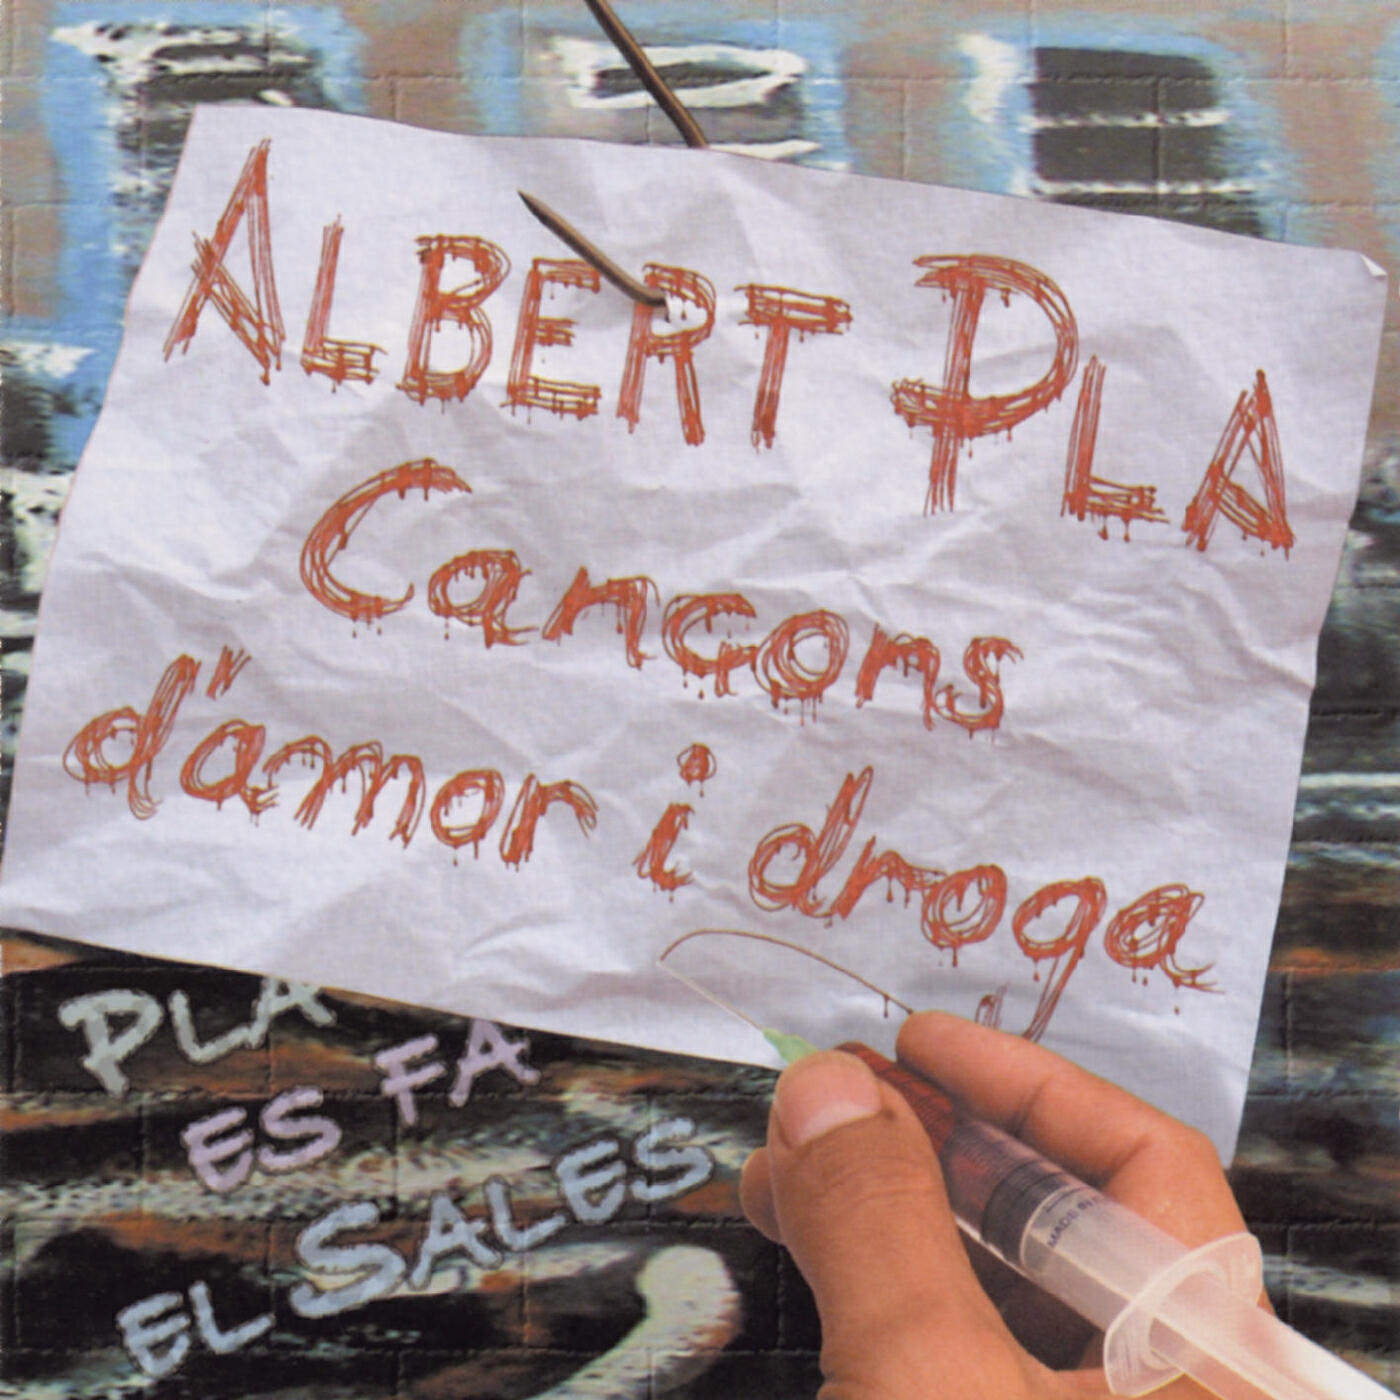 ALBERT PLA
Cançons
d'amor i droga
PLA
ES FA
EL SALES
MADE IN